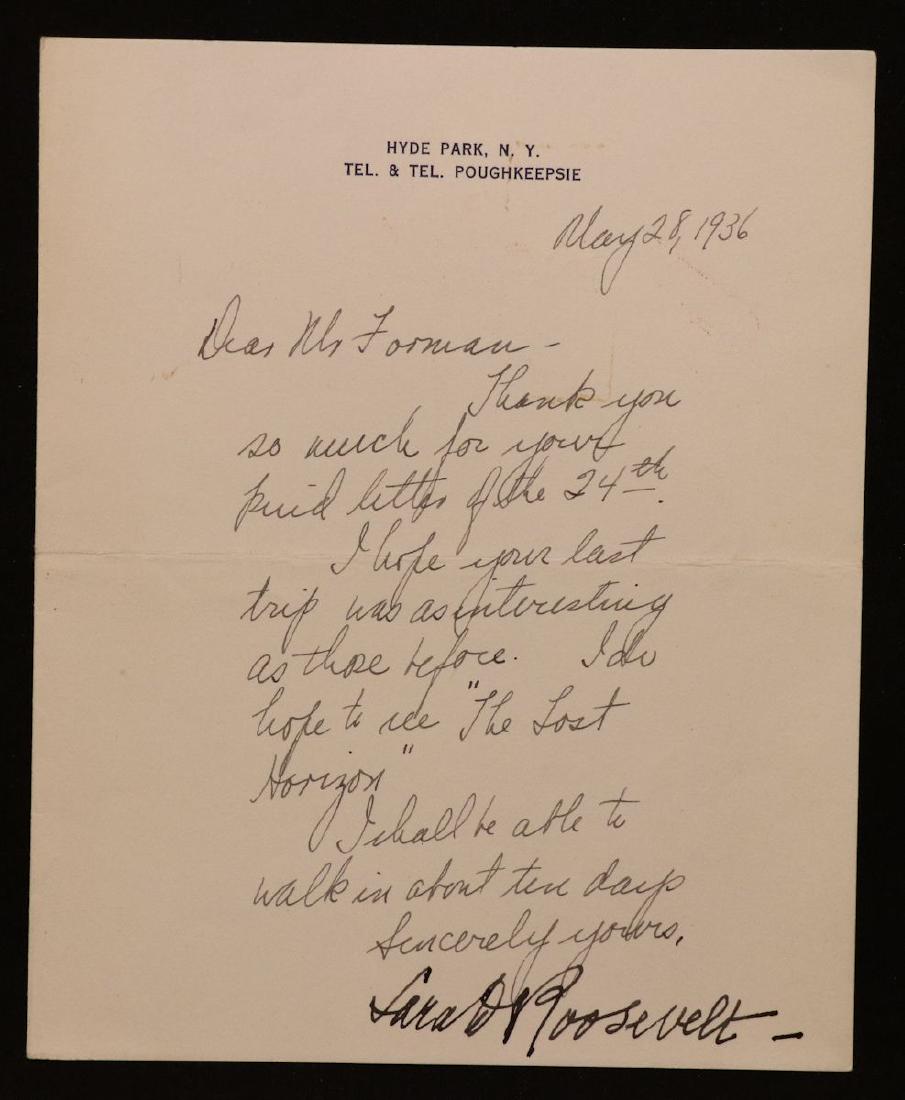 HYDE PARK, N. Y.
TEL. & TEL. POUGHKEEPSIE
May 28, 1936
Dear Mr Forman -
Thank you
so much for your
kind letter of the 24th.
I hope your last
trip was as interesting
as those before. I do
hope to see "The Lost
Horizon"
I shall be able to
walk in about ten days
Sincerely yours,
Sara D Roosevelt -